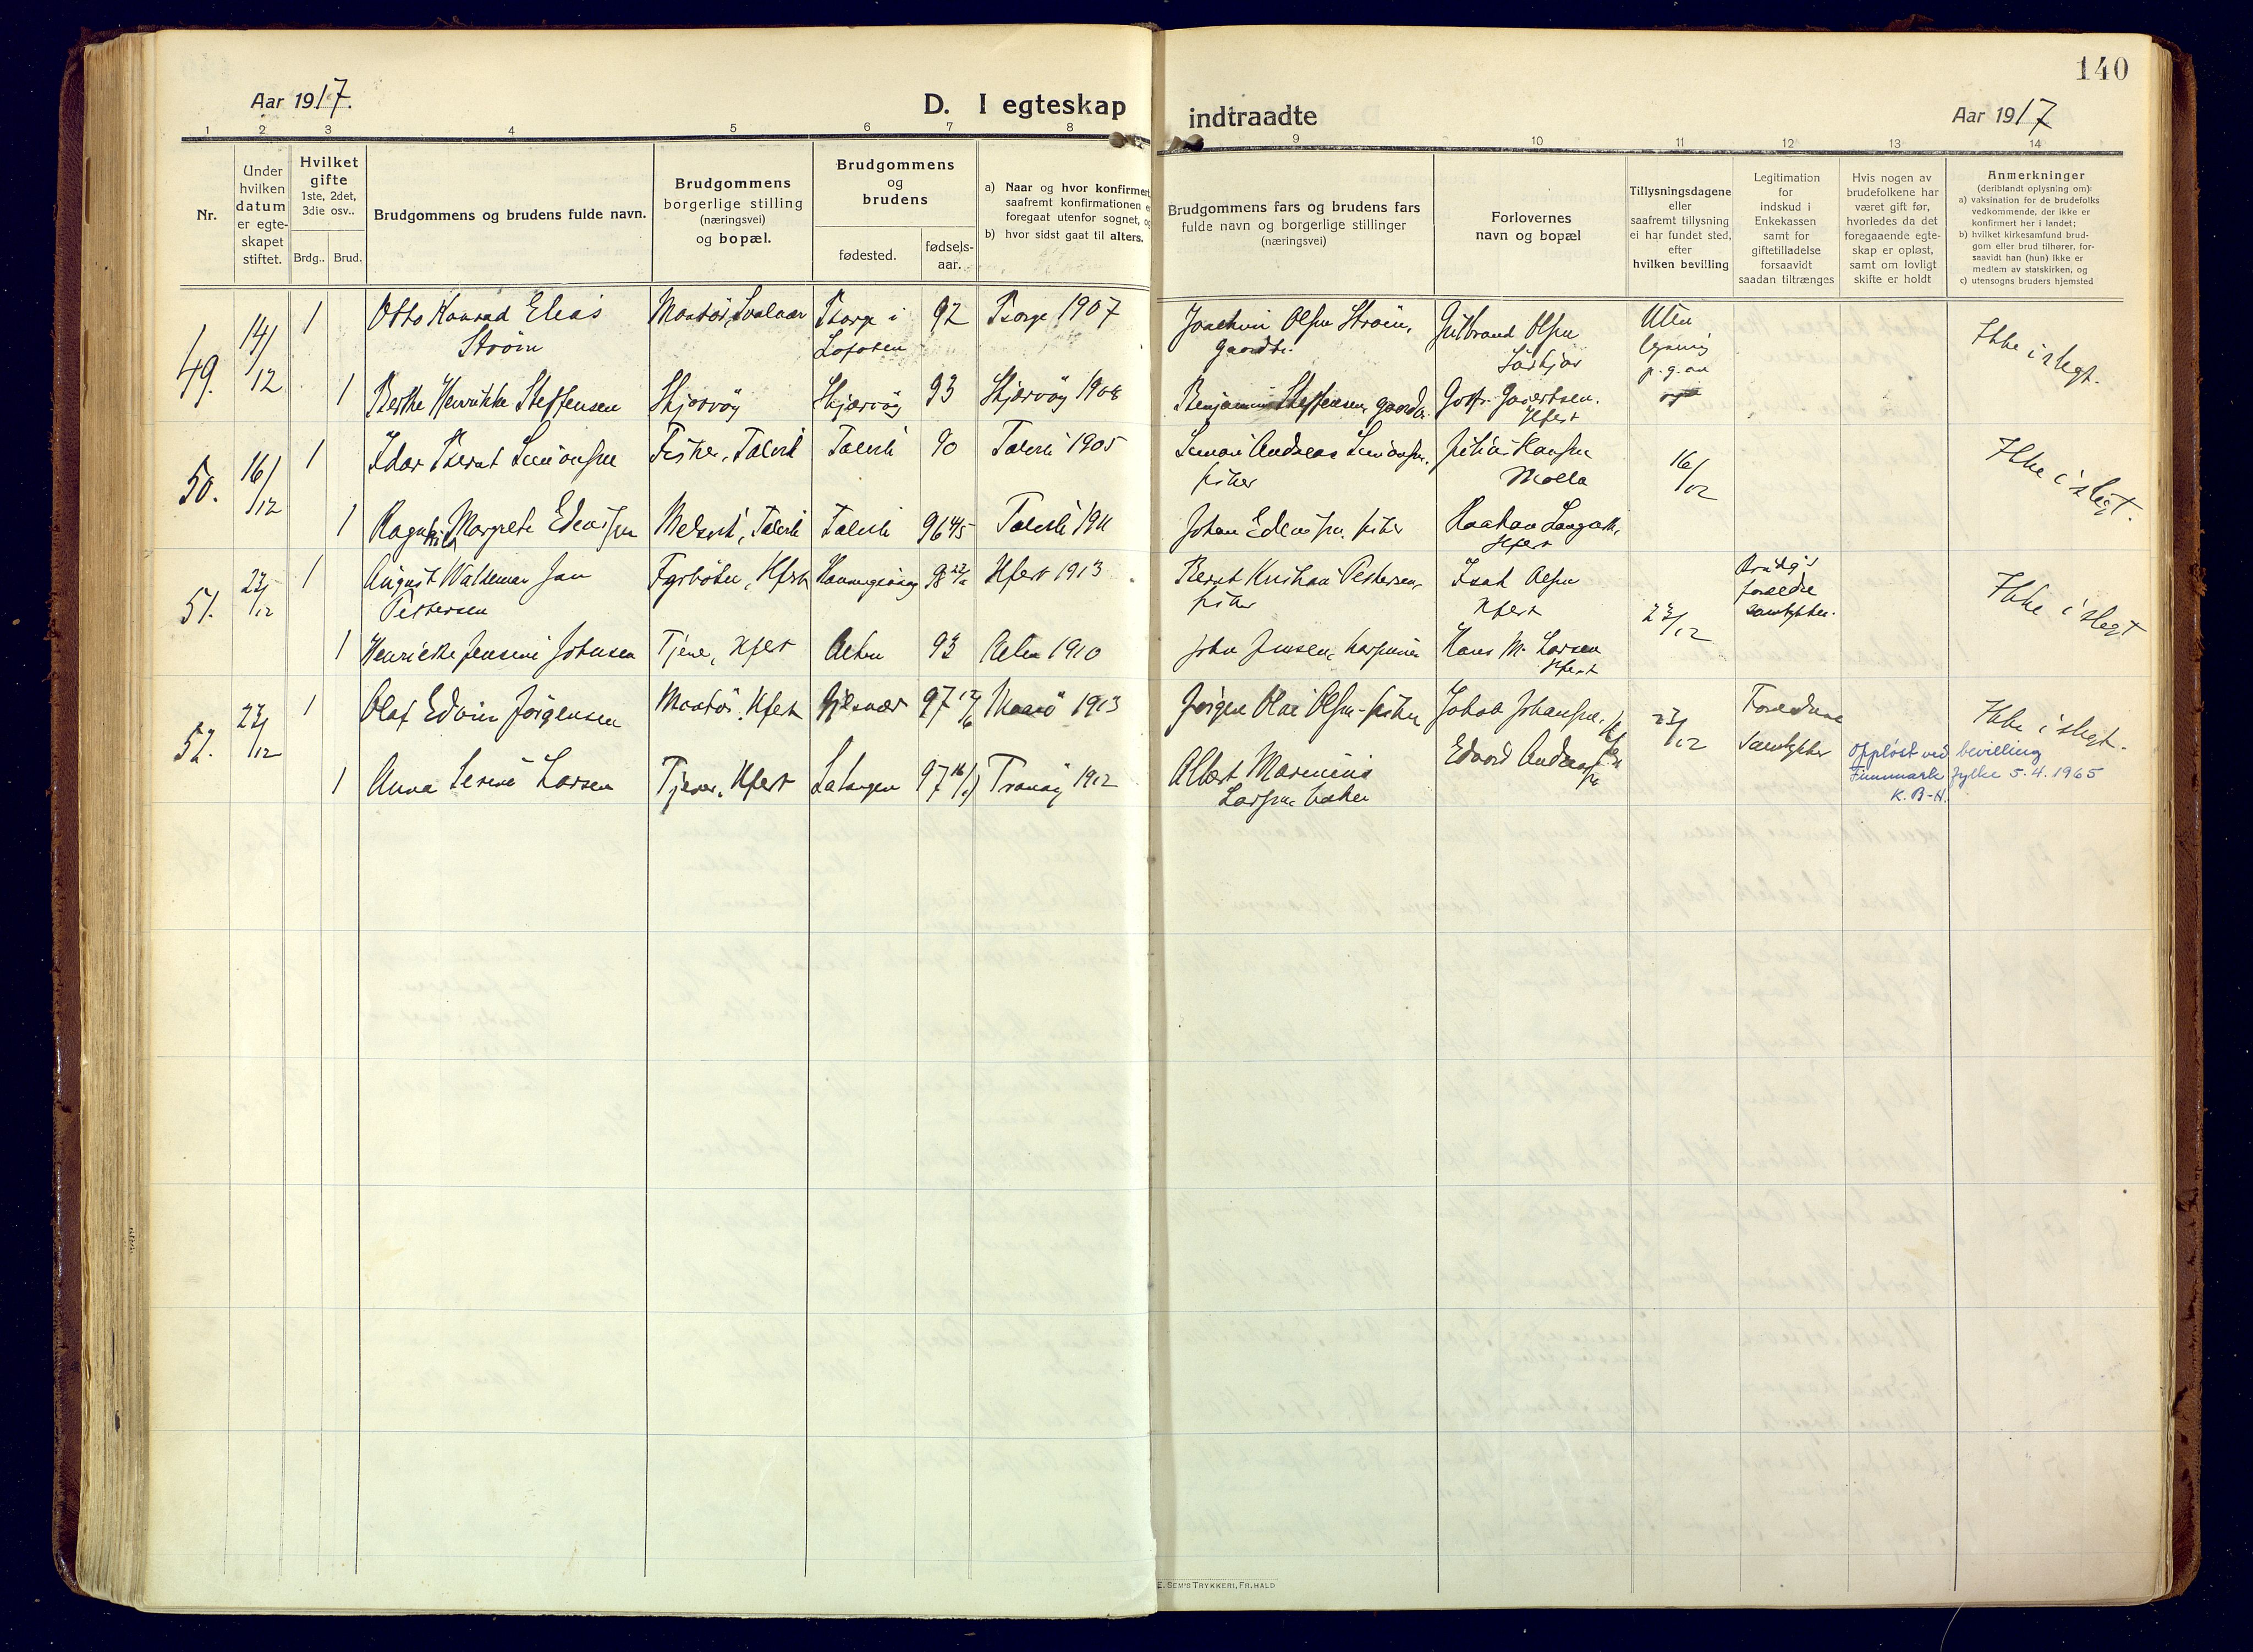 140
Aar 1917.
D. I egteskap indtraadte
Aar 1917
1 2 3 4 5 6 7 8 9 10 11 12 13 14
Nr.
Under
hvilken
datum
er egte-
skapet
stiftet.
Hvilket
gifte
1ste, 2det,
3die osv..
Brdg.. Brud.
Brudgommens og brudens fulde navn.
Brudgommens
borgerlige stilling
(næringsvei)
og bopæl.
Brudgommens
og
brudens
fødested.
fødsels-
aar.
a) Naar og hvor konfirmert
saafremt konfirmationen
foregaat utenfor sognet,
b) hvor sidst gaat til alters.
Brudgommens fars og brudens fars
fulde navn og borgerlige stillinger
(næringsvei)
Forlovernes
navn og bopæl
Tillysningsdagene
eller
saafremt tillysning
ei har fundet sted,
efter
hvilken bevilling
Legitimation
for
indskud i
Enkekassen
samt for
giftetilladelse
forsaavidt
saadan tiltrænges
Hvis nogen av
brudefolkene har
været gift før,
hvorledes da det
foregaaende egte-
skap er opløst,
samt om lovligt
skifte er holdt
Anmerkninger
(deriblandt oplysning om):
a) vaksination for de brudefolks
vedkommende, der ikke er
konfirmert her i landet;
b) hvilket kirkesamfund brud-
gom eller brud tilhører, for-
saavidt han (hun) ikke er
medlem av statskirken, og
c) utensogns bruders hjemsted
49. 14/12 1 Otto Konrad Elias
Strøm
Svolvær
Borge i
Lofoten
92 Borge 1907
Joachim Olsen Strøm,
gaardbr.
Gulbrand Olsen
Uten
lysning
p. g. av
Ikke i slegt.
1 Berthe Henrikke Steffensen Skjervøy Skjærvøy 93 Skjærvøy 1908
Benjamin Steffensen, gaardbr.
Hfest
50. 16/12 1 Idar Bernt Simonsen Fisker, Talvik Talvik 90 Talvik 1905
Simon Andreas Simonsen,
fisker
Hansen
Molla
16/12
Ikke i slegt.
1 Ragnhild Margrete Edvardsen Talvik Talvik 96 Talvik 1911
Johan fisker
Haakon
Hfest
51. 23/12 1 August Waldemar Jan
Pettersen
Fyrbøter, Hfest 98 Hfest 1913
Bernt Kristian Pettersen,
fisker
Isak Olsen
Hfest
23/12
Brudg's
foreldre
samtykker.
Ikke i slegt
1 Henrikke Jensine Johnsen Tjene, Hfest 93 1910
John Jensen,
Hans M. Larsen
Hfest
52. 23/12 1 Olaf Edvin Jørgensen Hfest Gjesvær 97 Maasø 1913
Jørgen Olai Olsen - fisker
Jakob Johansen, Hfest
23/12
Foreldrene
samtykker
Ikke i slegt.
1 Anna Serine Larsen Tjener, Hfest Salangen 97 Tranøy 1912
Albert Marinius
Larsen,
Edvard Andreassen
Oppløst ved bevilling
Finnmark fylke 5.4.1965
K. B-H.
E. SEM'S TRYKKERI, FR.HALD